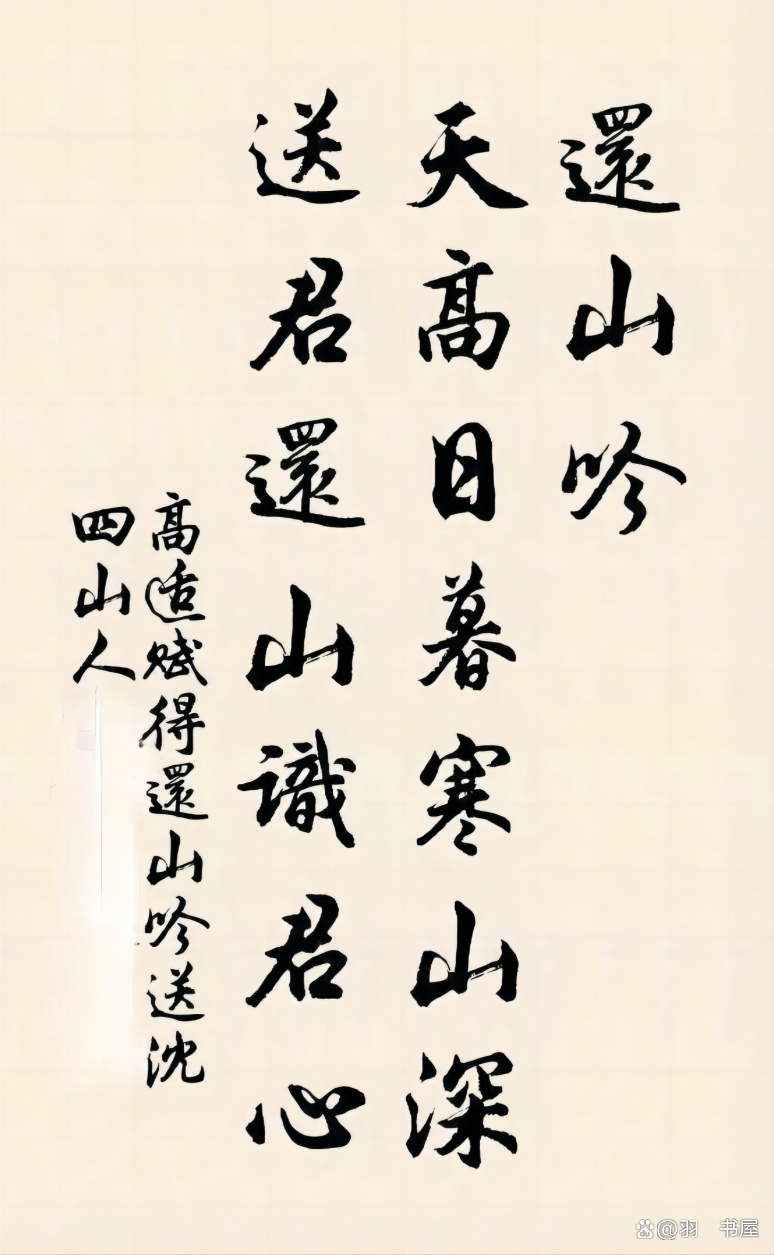 還山吟
天高日暮寒山深
送君還山識君心
高適賦得還山吟送沈
四山人
@羽 书屋